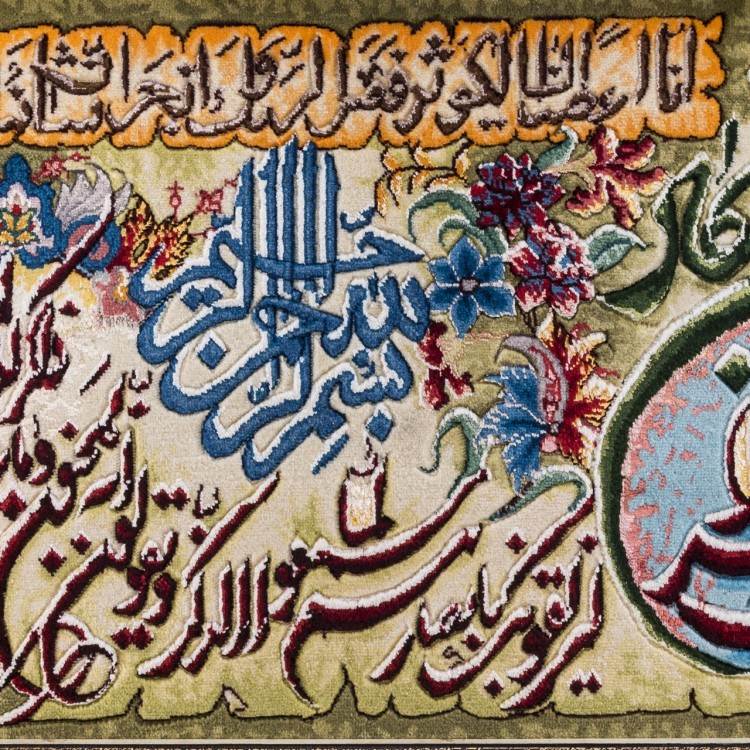 انا اعطيناك الكوثر فصل لربك وانحر ان شانئك
بسم الله الرحمن الرحيم
ليزلقونك بابصارهم لما سمعوا الذكر ويقولون انه لمجنون وما